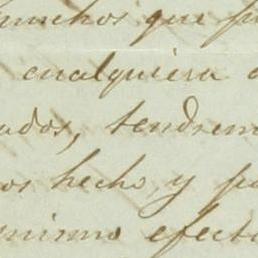 muchos que
cualquiera
ados, tendrem
os hecho y
mismo efecto